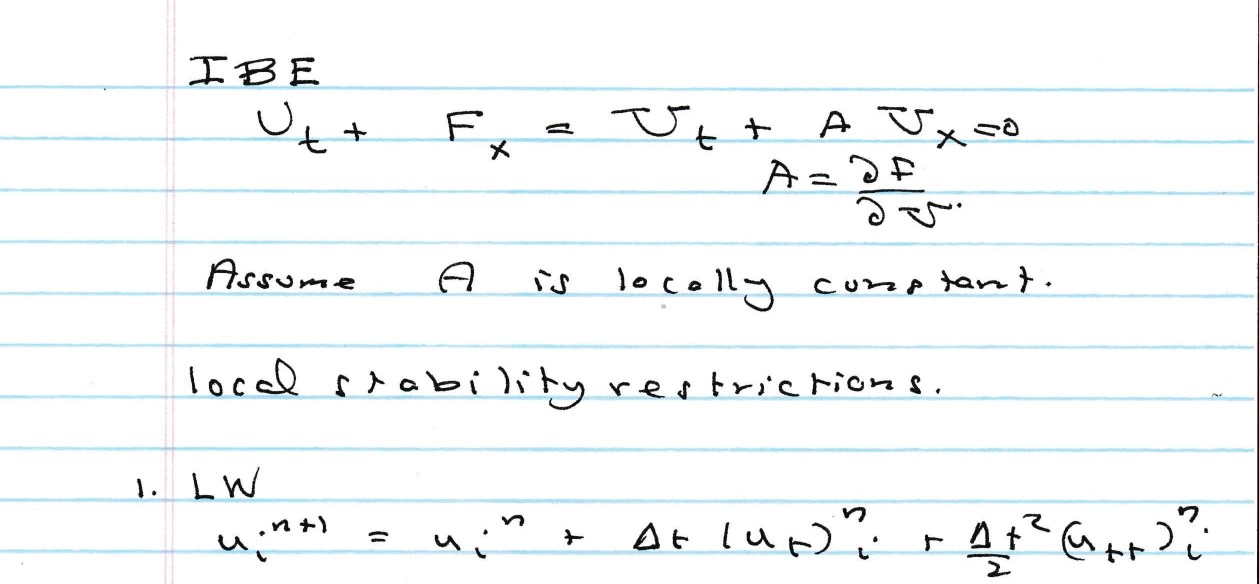 IBE
U_t + F_x = U_t + A U_x = 0
A = ∂F/∂U.
Assume A is locally constant.
local stability restrictions.
1. LW
u_i^{n+1} = u_i^n + Δt (u_t)_i^n + Δt²/2 (u_tt)_i^n